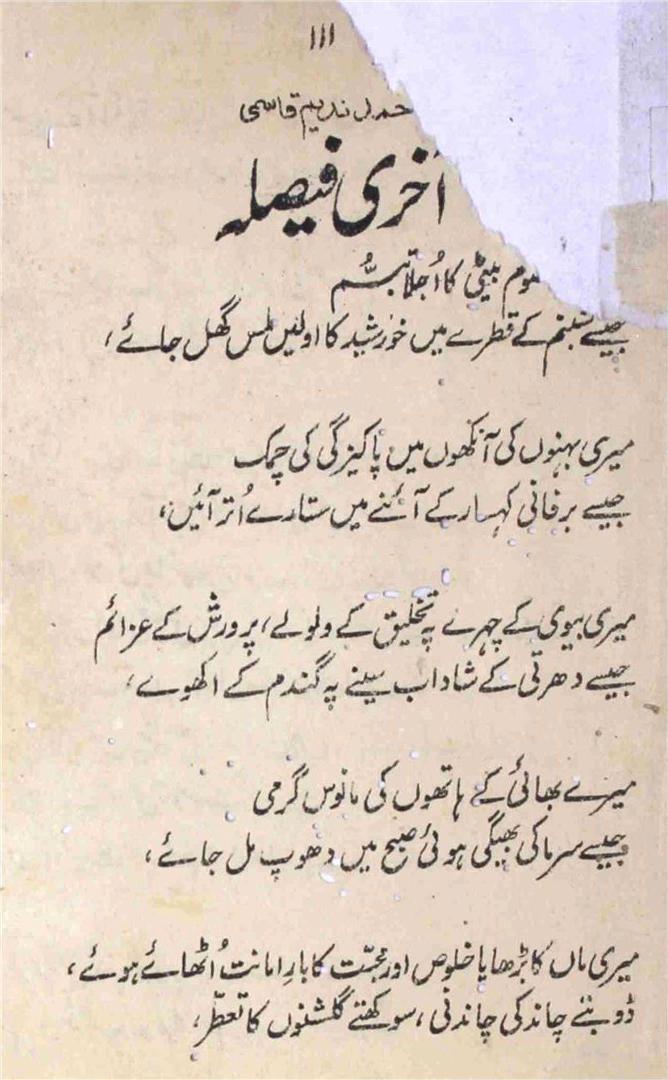 111
حمد ندیم قاسمی
آخری فیصلہ
بیٹی کا اُجلا تبسُّم
جیسے شبنم کے قطرے میں خورشید کا اولیں لمس گھل جائے،
میری بہنوں کی آنکھوں میں پاکیزگی کی چمک
جیسے برفانی کہسار کے آئنے میں ستارے اُتر آئیں،
میری بیوی کے چہرے پہ تخلیق کے ولولے، پرورش کے عزائم
جیسے دھرتی کے شاداب سینے پہ گندم کے اکھوے،
میرے بھائی کے ہاتھوں کی مانوس گرمی
جیسے سرما کی بھیگی ہوئی صبح میں دھوپ مل جائے،
میری ماں کا بڑھاپا خلوص اور محبّت کا بارِ امانت اُٹھائے ہوئے،
ڈوبتے چاند کی چاندنی، سوکھتے گلشنوں کا تعطّر،